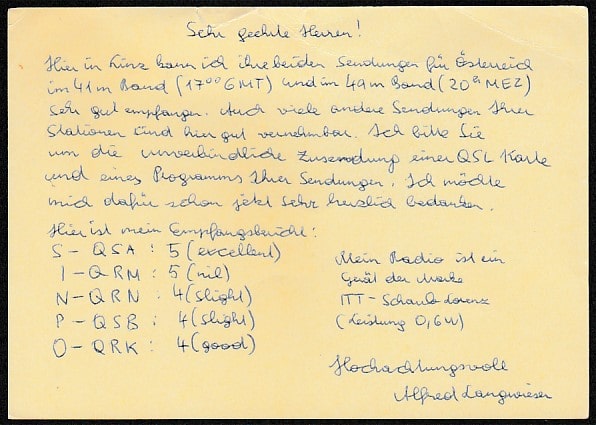 Sehr geehrte Herren!
Hier in Linz kann ich ihre beiden Sendungen für Österreich
im 41 m Band (17⁰⁰ GMT) und im 49 m Band (20⁰⁰ MEZ)
sehr gut empfangen. Auch viele andere Sendungen Ihrer
Stationen sind hier gut vernehmbar. Ich bitte Sie
um die unverbindliche Zusendung einer QSL Karte
und eines Programms Ihrer Sendungen. Ich möchte
mich dafür schon jetzt sehr herzlich bedanken.
Hier ist mein Empfangsbericht:
S - QSA : 5 (excellent)
I - QRM : 5 (nil)
N - QRN : 4 (slight)
P - QSB : 4 (slight)
O - QRK : 4 (good)
Mein Radio ist ein
Gerät der Marke
ITT - Schaub Lorenz
(Leistung 0,6 W)
Hochachtungsvoll
Alfred Langwieser